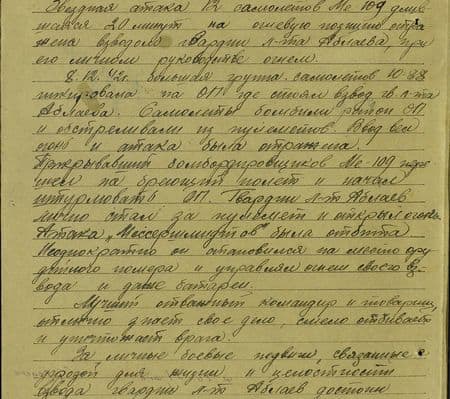 Звездная атака 12 самолетов Ме-109 длив-
шаяся 20 минут на огневую позицию отра-
жена взводом гвардии л-та Аблаева, при
его личном руководстве огнем.
8.12.42г. большая группа самолетов Ю-88
пикировала на ОП где стоял взвод гв. л-та
Аблаева. Самолеты бомбили район ОП
и обстреливали из пулеметов. Взвод вел
огонь и атака была отражена.
Прикрывавший бомбардировщиков Ме-109 пере
шел на бреющий полет и начал
штурмовать ОП. Гвардии л-т Аблаев
лично стал за пулемет и открыл огонь.
Атака „Мессершмидтов" была отбита
Неоднократно он становился на место ору
дийного номера и управлял огнем своего вз-
вода и даже батареи.
Лучший отважный командир и товарищ,
отлично знает свое дело, смело отбивает
и уничтожает врага.
За личные боевые подвиги, связанные с
угрозой для жизни и целостности
взвода гвардии л-т Аблаев достоин